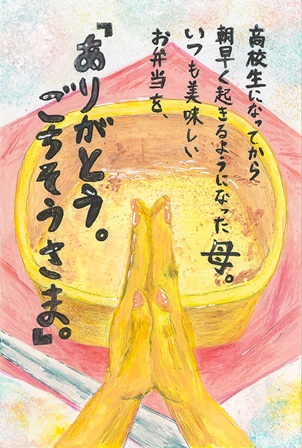 高校生になってから
朝早く起きるようになった母。
いつも美味しい
お弁当を、
「ありがとう。
ごちそうさま」。